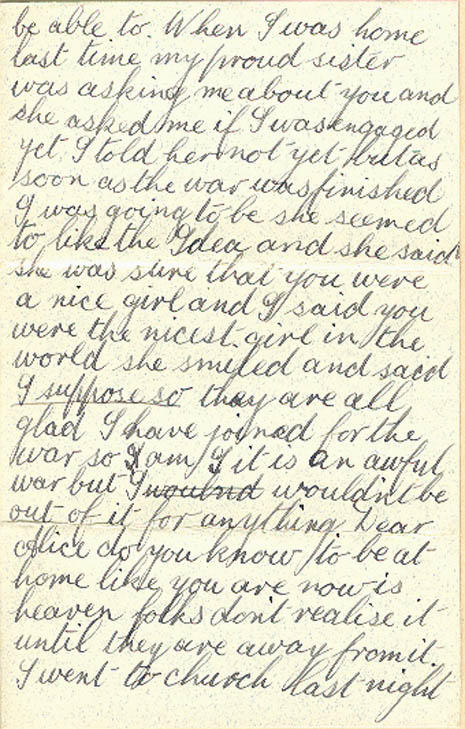 be able to. When I was home
last time my proud sister
was asking me about you and
she asked me if I was engaged
yet. I told her not yet but as
soon as the war was finished
I was going to be she seemed
to like the Idea and she said
she was sure that you were
a nice girl and I said you
were the nicest girl in the
world she smiled and said
I suppose so they are all
glad I have joined for the
war so I am I it is an awful
war but I wouldnd wouldn't be
out of it for anything Dear
Alice do you know to be at
home like you are now is
heaven folks don't realise it
until they are away from it.
I went to church last night